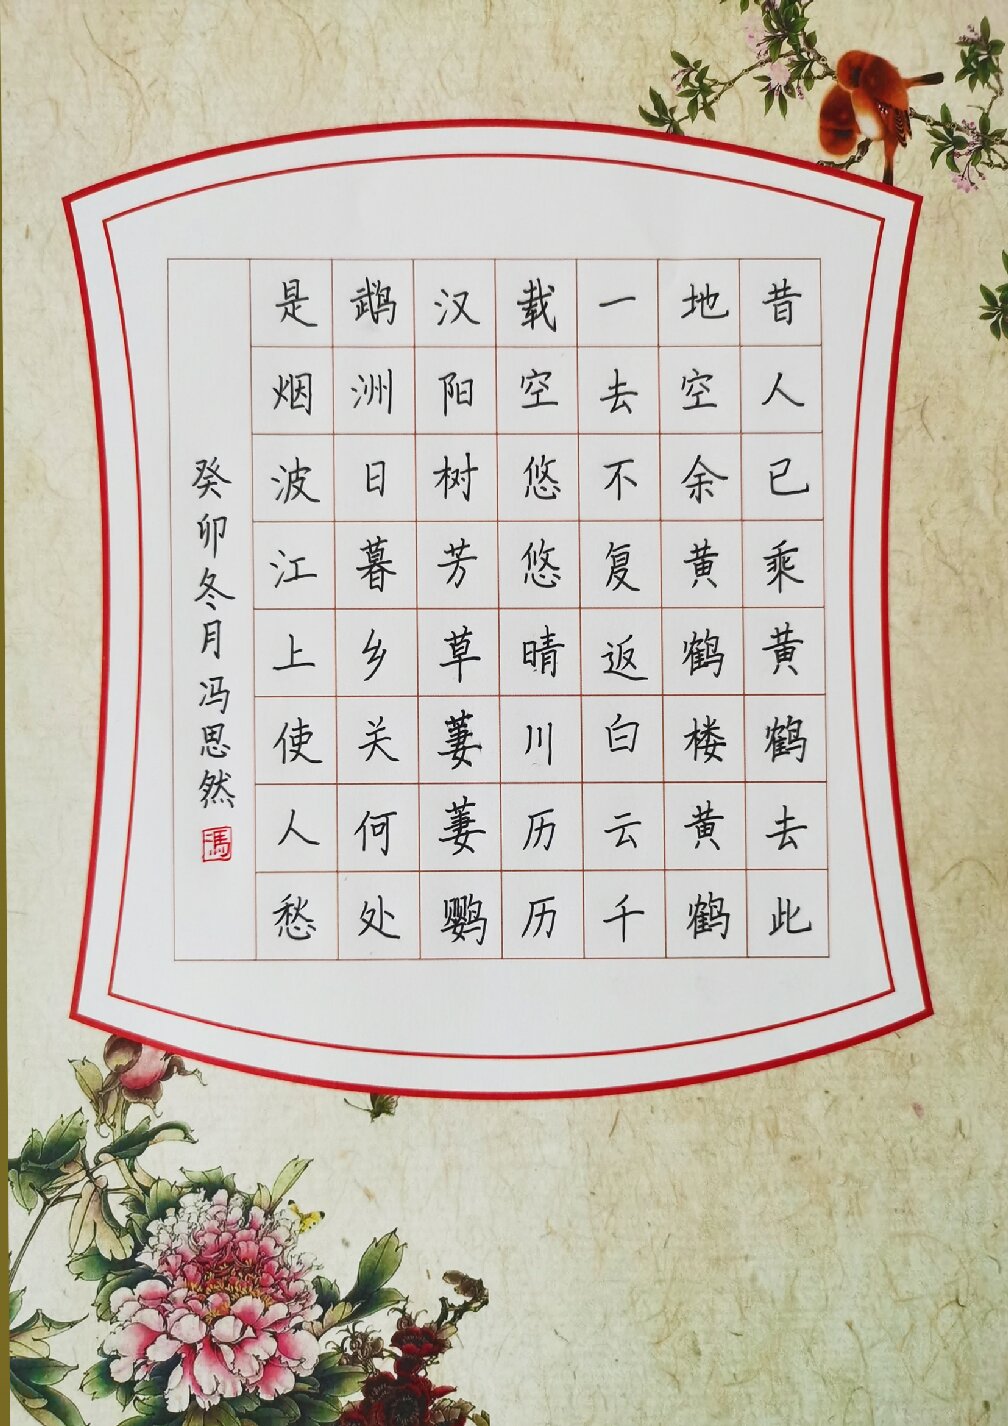 昔人已乘黄鹤去此
地空余黄鹤楼黄鹤
一去不复返白云千
载空悠悠晴川历历
汉阳树芳草萋萋鹦
鹉洲日暮乡关何处
是烟波江上使人愁
癸卯冬月冯思然
馮